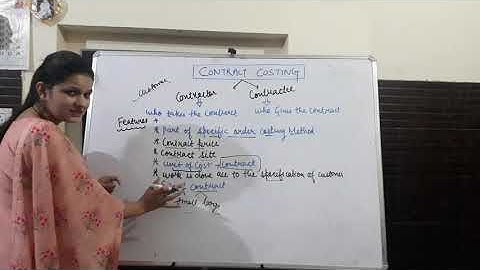 CONTRACT COSTING
customer
Contractor Contractee
who takes the Contract who Gives the Contract
Features
* Part of specific order costing Method
* Contract price
* Contract site
* unit of Cost - Contract
* work is done acc to the specification of customer
contract
small large